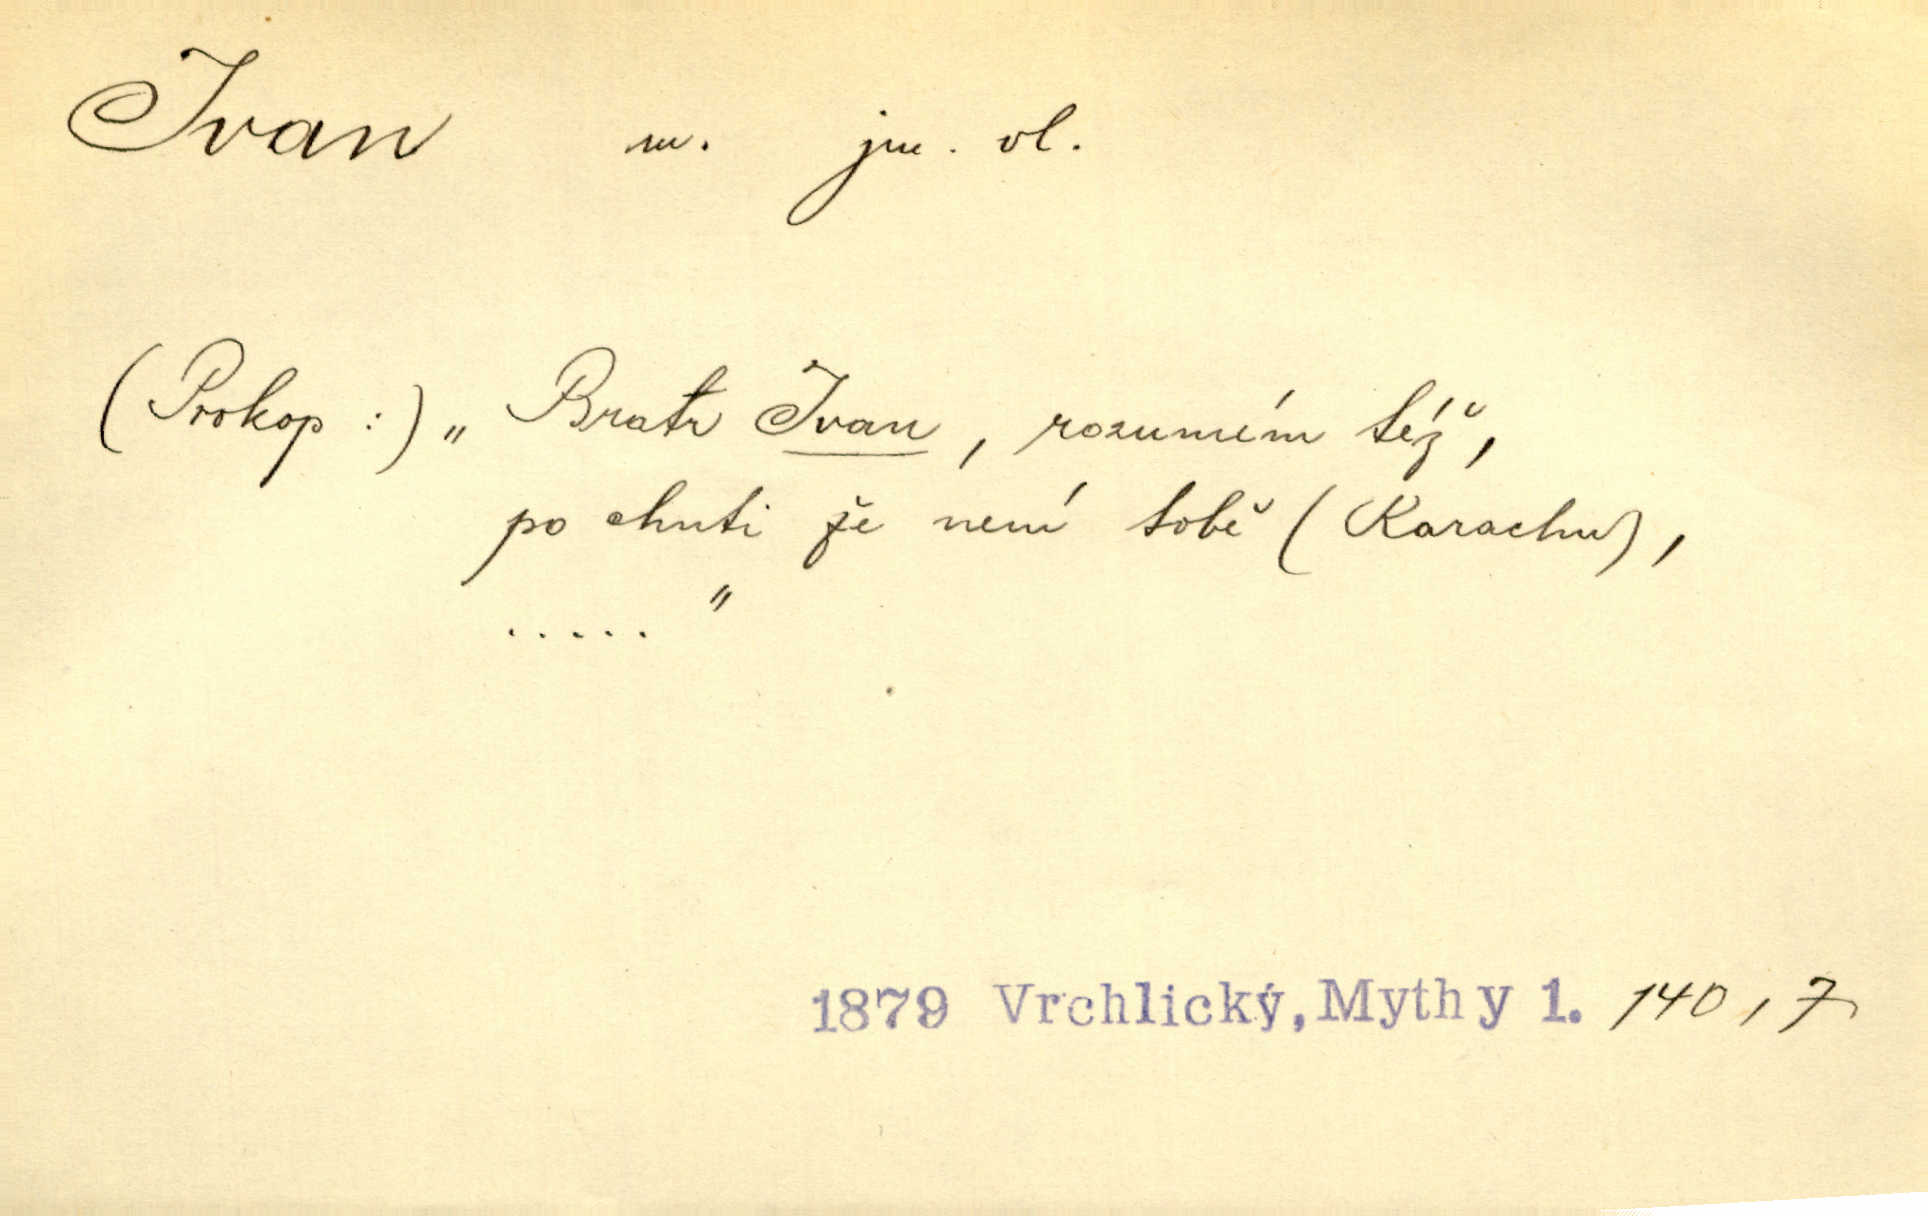 Ivan m. jm. vl.
(Prokop:) „Bratr Ivan, rozumím též,
po chuti že není tobě (Karachu),
....."
1879 Vrchlický, Mythy 1. 140,7